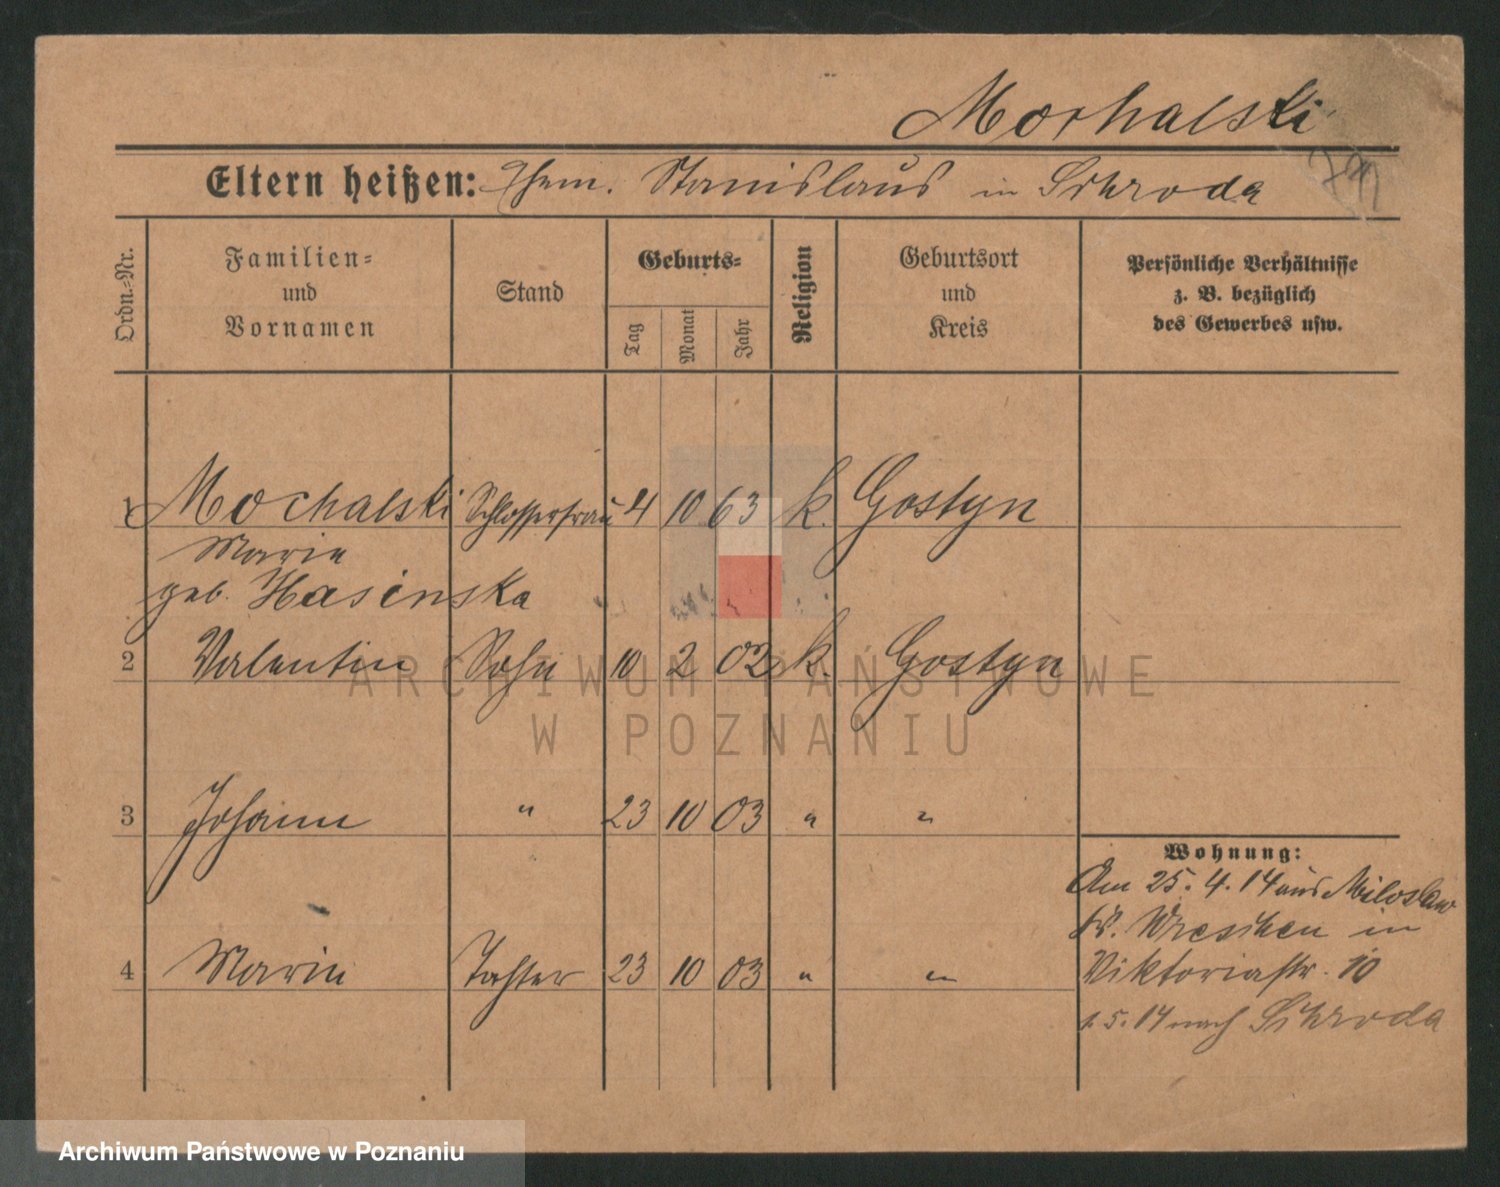 Mochalski
Eltern heißen: Ehem. Stanislaus in Schroda
Ordn.-Nr.
Familien-
und
Vornamen
Stand
Geburts-
Tag
Monat
Jahr
Religion
Geburtsort
und
Kreis
Persönliche Verhältnisse
z. B. bezüglich
des Gewerbes usw.
1 Mochalski Schlosserfrau 4 10 63 k. Gostyn
Marie
geb. Hasinska
2 Valentin Sohn 10 2 02 k. Gostyn
3 Johann " 23 10 03 " "
4 Marie Tochter 23 10 03 " "
Wohnung:
Am 25.4.14 aus Miloslaw
Kr. Wreschen in
Viktoriastr. 10
1.5.14 nach Schroda
ARCHIWUM PAŃSTWOWE
W POZNANIU
Archiwum Państwowe w Poznaniu